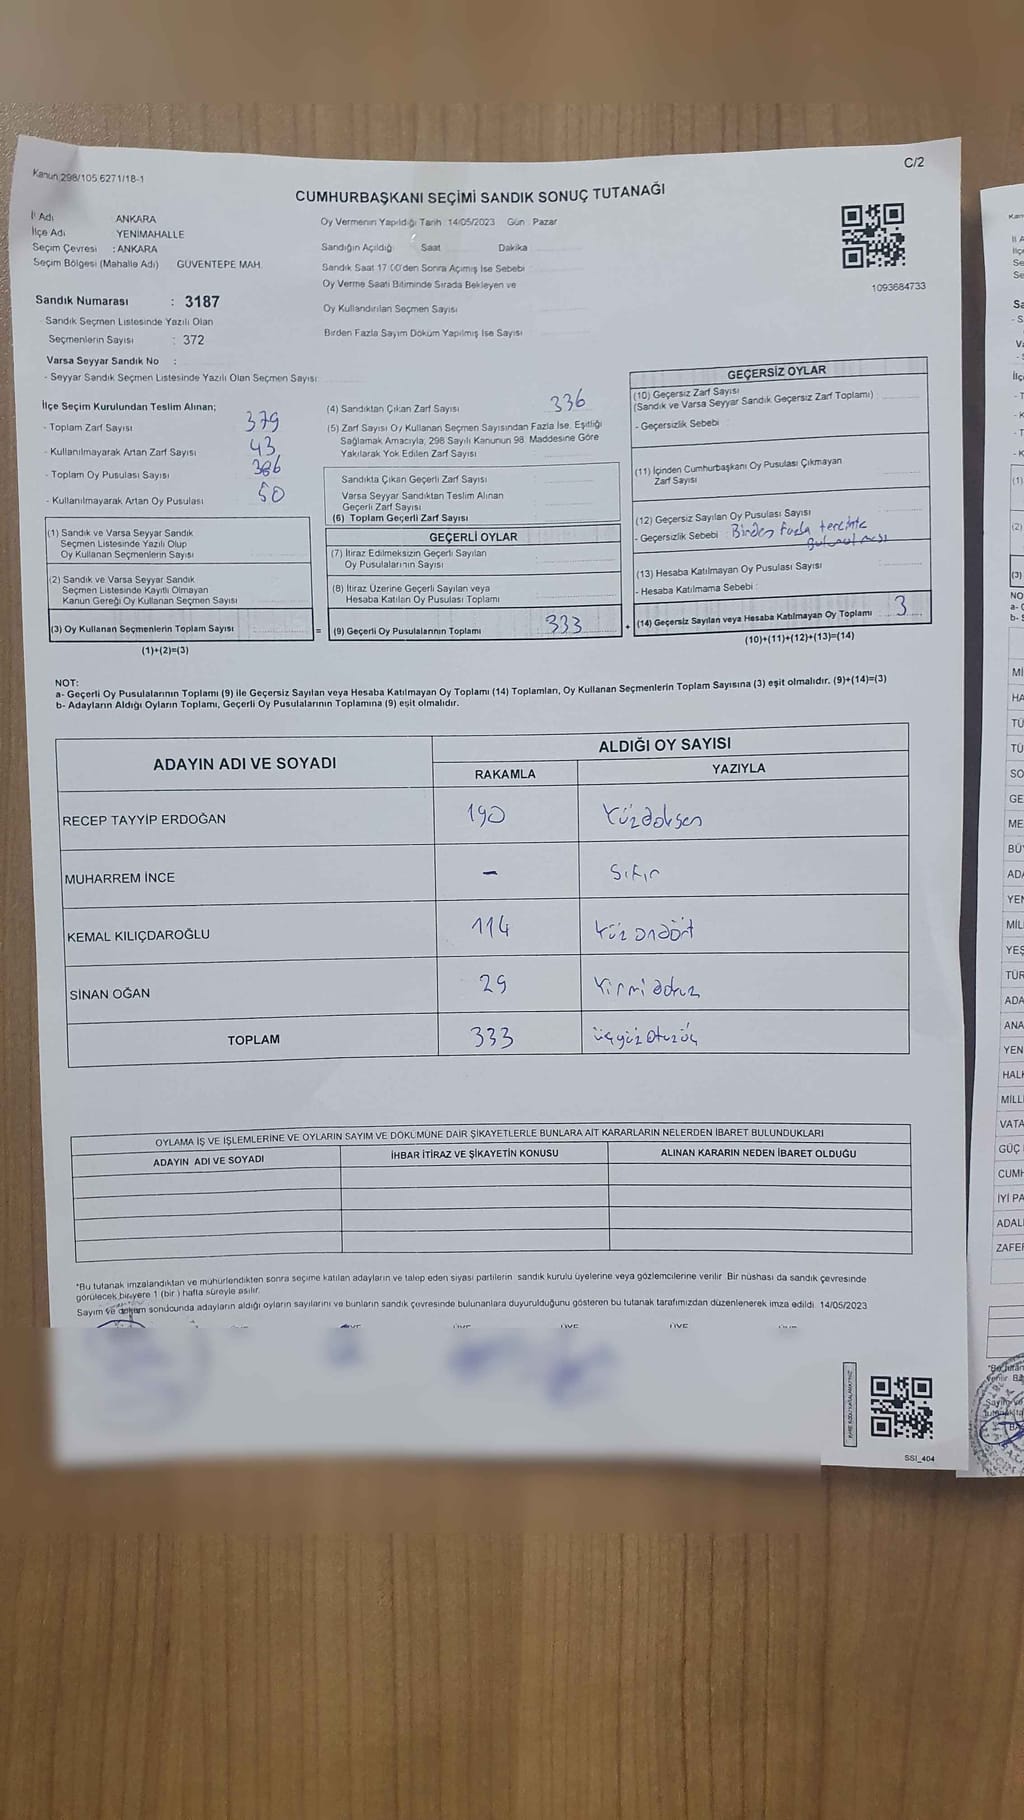 C/2
Kanun:298/105 6271/18-1
CUMHURBAŞKANI SEÇİMİ SANDIK SONUÇ TUTANAĞI
İl Adı ANKARA
İlçe Adı YENIMAHALLE
Seçim Çevresi : ANKARA
Seçim Bölgesi (Mahalle Adı) GÜVENTEPE MAH.
Oy Vermenin Yapıldığı Tarih :14/05/2023 Gün : Pazar
Sandığın Açıldığı Saat Dakika
Sandık Saat 17 00'den Sonra Açımış İse Sebebi
Oy Verme Saati Bitiminde Sırada Bekleyen ve
Oy Kullandırılan Seçmen Sayısı
Birden Fazla Sayım Döküm Yapılmış İse Sayısı
1093684733
Sandık Numarası : 3187
- Sandık Seçmen Listesinde Yazılı Olan
Seçmenlerin Sayısı : 372
Varsa Seyyar Sandık No :
- Seyyar Sandık Seçmen Listesinde Yazılı Olan Seçmen Sayısı:
İlçe Seçim Kurulundan Teslim Alınan;
- Toplam Zarf Sayısı 379
- Kullanılmayarak Artan Zarf Sayısı 43
- Toplam Oy Pusulası Sayısı 386
- Kullanılmayarak Artan Oy Pusulası 50
(1) Sandık ve Varsa Seyyar Sandık
Seçmen Listesinde Yazılı Olup
Oy Kullanan Seçmenlerin Sayısı
(2) Sandık ve Varsa Seyyar Sandık
Seçmen Listesinde Kayıtlı Olmayan
Kanun Gereği Oy Kullanan Seçmen Sayısı
(3) Oy Kullanan Seçmenlerin Toplam Sayısı =
(1)+(2)=(3)
(4) Sandıktan Çıkan Zarf Sayısı 336
(5) Zarf Sayısı Oy Kullanan Seçmen Sayısından Fazla İse, Eşitliği
Sağlamak Amacıyla, 298 Sayılı Kanunun 98. Maddesine Göre
Yakılarak Yok Edilen Zarf Sayısı
Sandıkta Çıkan Geçerli Zarf Sayısı
Varsa Seyyar Sandıktan Teslim Alınan
Geçerli Zarf Sayısı
(6) Toplam Geçerli Zarf Sayısı
GEÇERLİ OYLAR
(7) İtiraz Edilmeksizin Geçerli Sayılan
Oy Pusulalarının Sayısı
(8) İtiraz Üzerine Geçerli Sayılan veya
Hesaba Katılan Oy Pusulası Toplamı
(9) Geçerli Oy Pusulalarının Toplamı 333 +
GEÇERSİZ OYLAR
(10) Geçersiz Zarf Sayısı
(Sandık ve Varsa Seyyar Sandık Geçersiz Zarf Toplamı)
- Geçersizlik Sebebi :
(11) İçinden Cumhurbaşkanı Oy Pusulası Çıkmayan
Zarf Sayısı
(12) Geçersiz Sayılan Oy Pusulası Sayısı
- Geçersizlik Sebebi : Birden fazla tercihte
bulunulması
(13) Hesaba Katılmayan Oy Pusulası Sayısı
- Hesaba Katılmama Sebebi :
(14) Geçersiz Sayılan veya Hesaba Katılmayan Oy Toplamı 3
(10)+(11)+(12)+(13)=(14)
NOT:
a- Geçerli Oy Pusulalarının Toplamı (9) ile Geçersiz Sayılan veya Hesaba Katılmayan Oy Toplamı (14) Toplamları, Oy Kullanan Seçmenlerin Toplam Sayısına (3) eşit olmalıdır. (9)+(14)=(3)
b- Adayların Aldığı Oyların Toplamı, Geçerli Oy Pusulalarının Toplamına (9) eşit olmalıdır.
ADAYIN ADI VE SOYADI ALDIĞI OY SAYISI
RAKAMLA YAZIYLA
RECEP TAYYİP ERDOĞAN 190 Yüzdoksan
MUHARREM İNCE - Sıfır
KEMAL KILIÇDAROĞLU 114 Yüz ondört
SİNAN OĞAN 29 Yirmidokuz
TOPLAM 333 üçyüz otuzüç
OYLAMA İŞ VE İŞLEMLERİNE VE OYLARIN SAYIM VE DÖKÜMÜNE DAİR ŞİKAYETLERLE BUNLARA AİT KARARLARIN NELERDEN İBARET BULUNDUKLARI
ADAYIN ADI VE SOYADI İHBAR İTİRAZ VE ŞİKAYETİN KONUSU ALINAN KARARIN NEDEN İBARET OLDUĞU
*Bu tutanak imzalandıktan ve mühürlendikten sonra seçime katılan adayların ve talep eden siyasi partilerin sandık kurulu üyelerine veya gözlemcilerine verilir. Bir nüshası da sandık çevresinde
görülecek bir yere 1 (bir) hafta süreyle asılır.
Sayım ve döküm sonucunda adayların aldığı oyların sayılarını ve bunların sandık çevresinde bulunanlara duyurulduğunu gösteren bu tutanak tarafımızdan düzenlenerek imza edildi. 14/05/2023
SSI_404